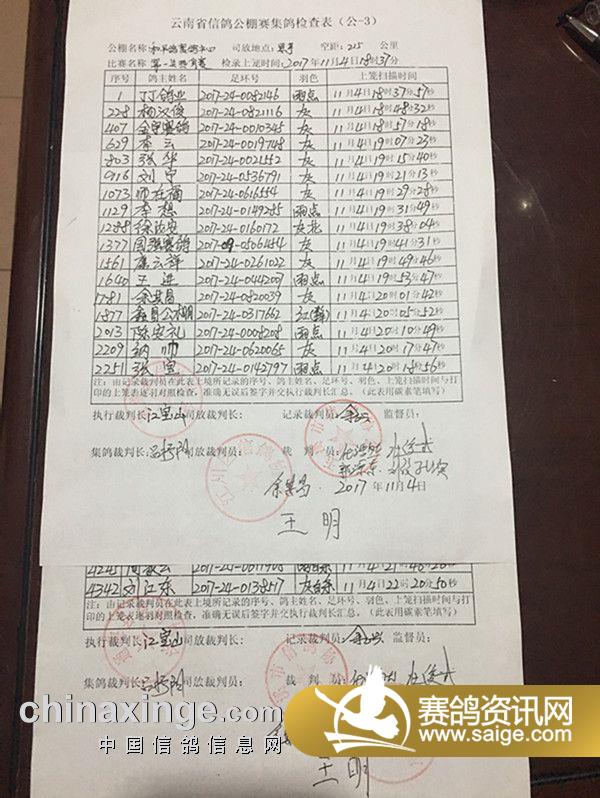 云南省信鸽公棚赛集鸽检查表（公-3）
公棚名称： 司放地点： 空距：215 公里
比赛名称： 检录上笼时间：2017年11月4日18时37分
序号 鸽主姓名 足环号 羽色 上笼扫描时间
1 丁丁鸽业 2017-24-0082146 雨点 11月4日18时37分57秒
228 杨汉俊 2017-24-0821116 灰 11月4日18时48分32秒
407 2017-24-0010345 灰 11月4日18时57分18秒
629 李云 2017-24-0019748 灰 11月4日19时07分23秒
803 张华 2017-24-0021552 灰 11月4日19时15分40秒
916 刘宇 2017-24-0536791 灰 11月4日19时21分13秒
1073 师在福 2017-24-0616554 灰 11月4日19时29分28秒
1129 李想 2017-24-0149285 雨点 11月4日19时31分49秒
1288 2017-24-0160172 灰花 11月4日19时38分04秒
1377 国强赛鸽 2017-24-0506454 灰 11月4日19时41分31秒
1561 廉云辉 2017-24-0261022 灰 11月4日19时49分46秒
1640 王进 2017-24-0442007 雨点 11月4日19时53分47秒
1781 余其昌 2017-24-0820039 灰 11月4日20时01分42秒
1877 2017-24-0317662 11月4日20时05分52秒
2013 陈安礼 2017-24-0008208 雨点 11月4日20时10分49秒
2209 纳帅 2017-24-0620065 灰 11月4日20时17分47秒
2251 张宝 2017-24-0142797 雨点 11月4日20时18分56秒
注：由记录裁判员在此表上填所记录的序号、鸽主姓名、足环号、羽色、上笼扫描时间与打
印的上笼表逐羽对照检查，准确无误后签字并交执行裁判长汇总。（此表用碳素笔填写）
执行裁判长：江宝山 司放裁判长： 记录裁判员： 监督员：
集鸽裁判长： 司放裁判员： 裁 判 员：
余其昌 2017年11月4日
王明
4245 2017-24-0011908 11月4日21时46分20秒
4342 刘江东 2017-24-0138517 11月4日22时20分50秒
注：由记录裁判员在此表上填所记录的序号、鸽主姓名、足环号、羽色、上笼扫描时间与打
印的上笼表逐羽对照检查，准确无误后签字并交执行裁判长汇总。（此表用碳素笔填写）
执行裁判长：江宝山 司放裁判长： 记录裁判员： 监督员：
集鸽裁判长： 司放裁判员： 裁 判 员：
王明
chinaxinge.com
中国信鸽信息网
赛鸽资讯网
www.saige.com